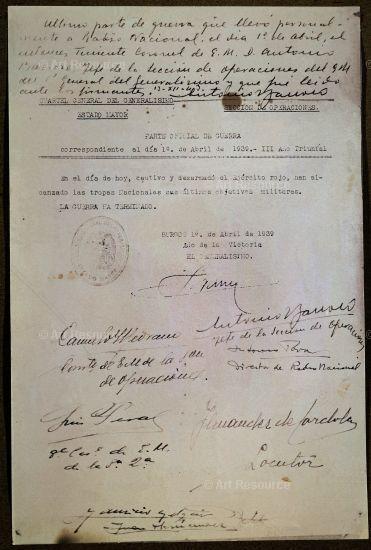 Ultimo parte de guerra que llevó personal-
mente a Radio Nacional, el día 1º de abril, el
entonces Teniente Coronel de E.M. D. Antonio
Jefe de la Sección de operaciones del E.M.
del General del Generalísimo y que fué leido
ante los firmantes.
CUARTEL GENERAL DEL GENERALISIMO
SECCION DE OPERACIONES.
ESTADO MAYOR
PARTE OFICIAL DE GUERRA
correspondiente al día 1º. de Abril de 1939.- III Año Triunfal
En el día de hoy, cautivo y desarmado el Ejército rojo, han al-
canzado las tropas Nacionales sus últimos objetivos militares.
LA GUERRA HA TERMINADO.
BURGOS 1º. de Abril de 1939
Año de la Victoria
EL GENERALISIMO.
Antonio
Jefe de la Sección de Operaciones
Comte de E.M. de la
de operaciones
Director de Radio Nacional
Luis
Fernandez de Cordoba
de E.M.
de la 2ª
Locutor
© Art Resource
© Art Resource
© Art Resource
© Art Resource